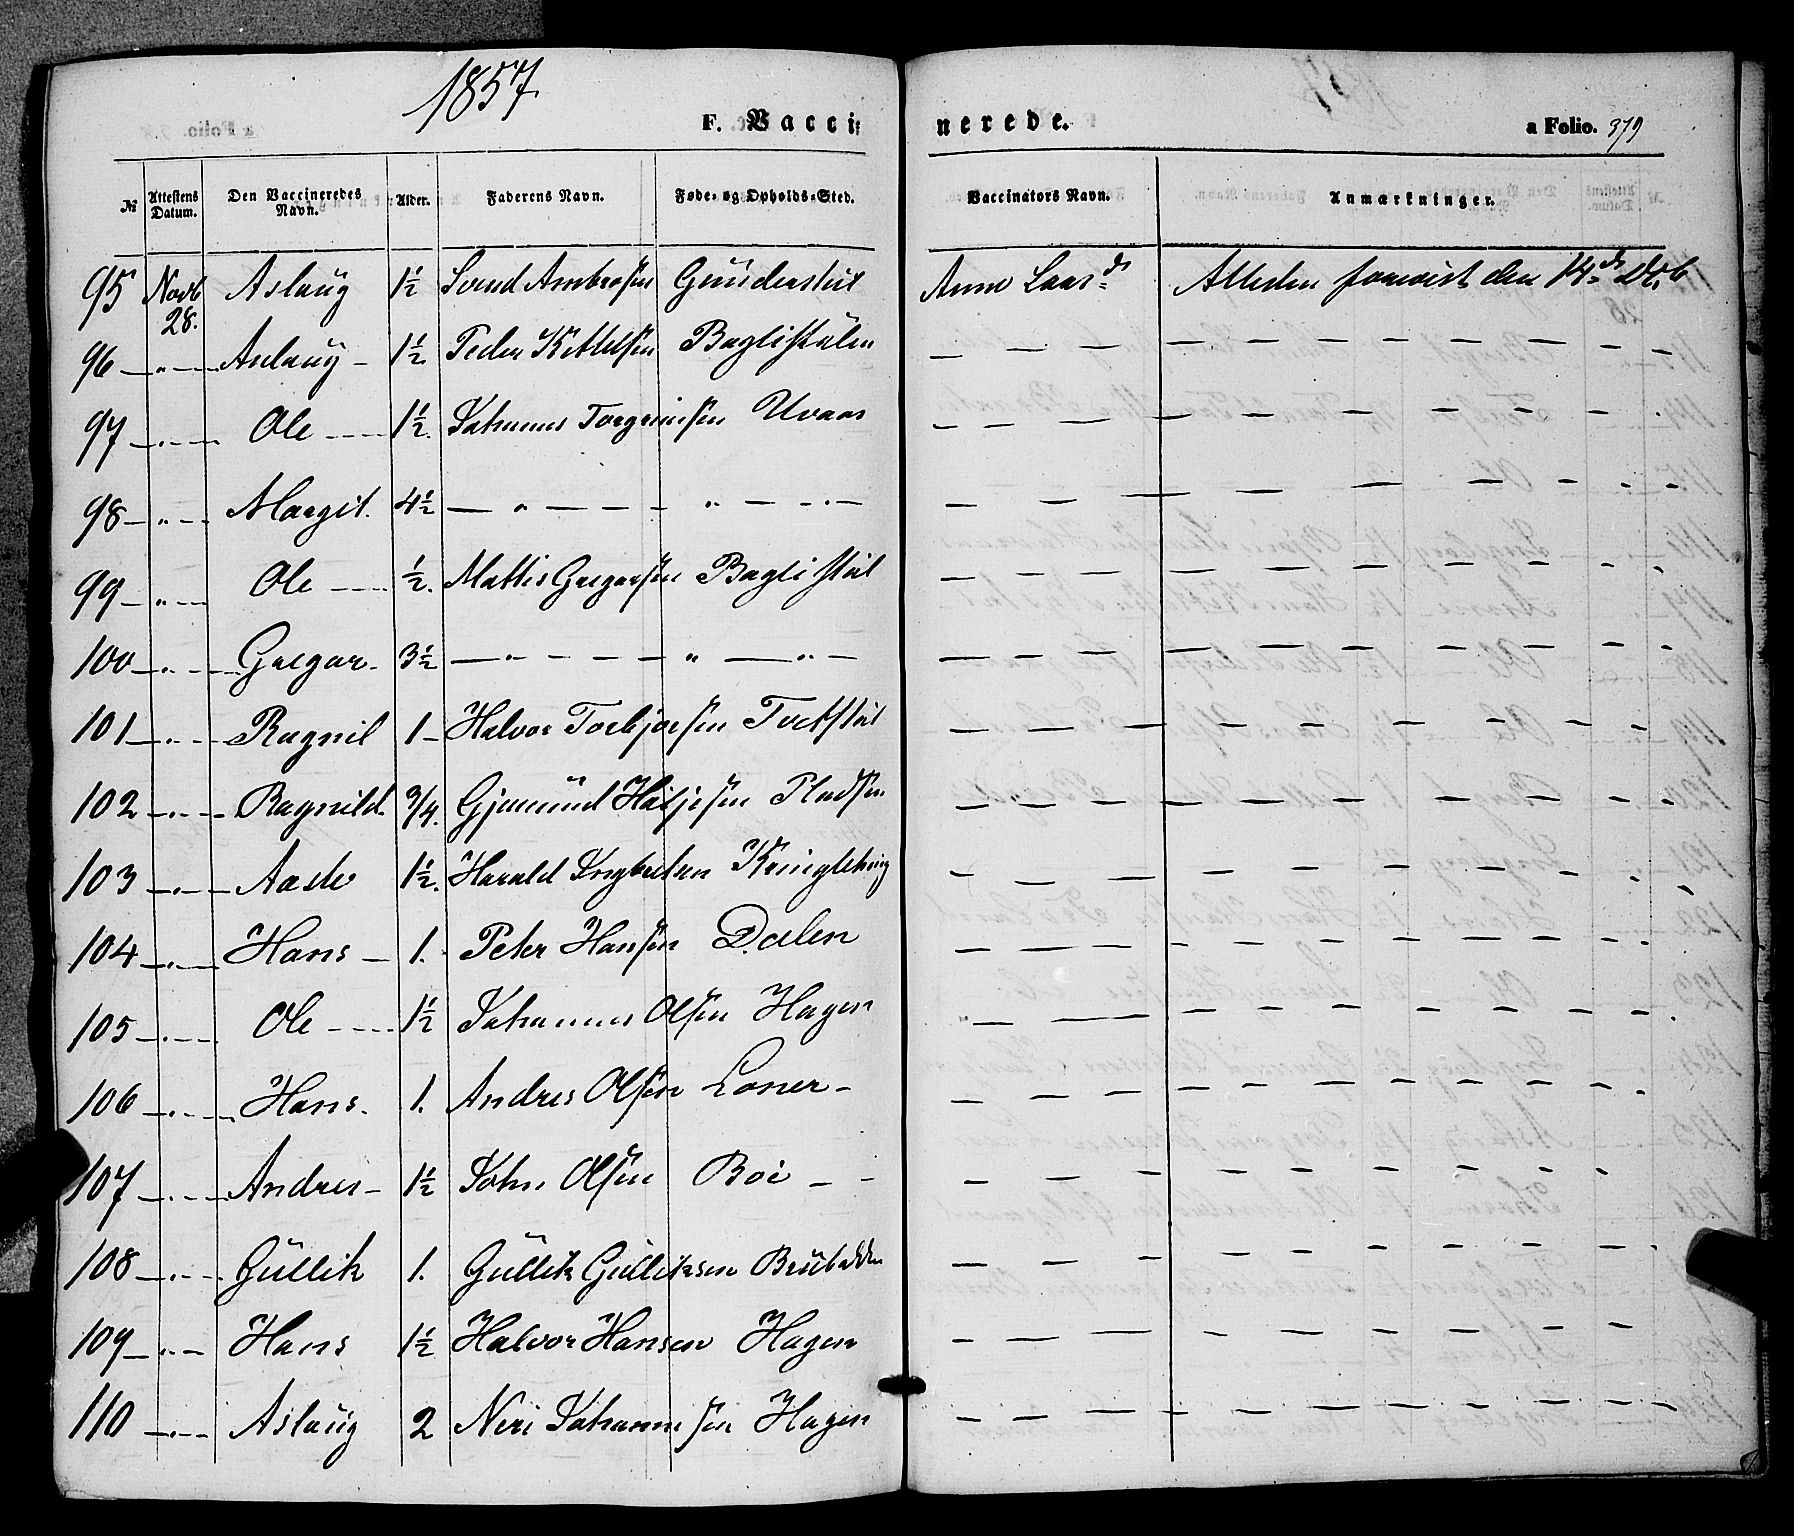 1857
F. Vacci- nerede. a Folio. 379
№ Attestens Datum. Den Vaccineredes Navn. Alder. Faderens Navn. Føde- og Opholds-Sted. Vaccinators Navn. Anmærkninger.
95 Novb 28. Aslaug 1½ Svend Ambrosen Anne Laars
96 — " — Anlaug - 1½ Peder Kittelsen Baglistulen — — —
97 — " — Ole — 1½ Johannes Torgrimsen Uvaas — — —
98 — " — Margit. 4½ — " — — " — — — —
99 — " — Ole — ½. Mattis Gregarsen Baglistul — — —
100 — " — Gregar - 3½ — " — — " — — — —
101 — " — Ragnil 1 - Halvor Torbjorsen Tvetstul — — —
102 — " — Ragnild. 3/4. Gjermund Pladsen — — —
103 — " — Aasle 1½. Harald Ingbretsen — — —
104 — " — Hans — 1. Peter Hansen Dalen — — —
105 — " — Ole — 1½ Johannes Olsen Hagen — — —
106 — " — Hans. 1. Andres Olsen Loner - — — —
107 — " — Andres - 1½ John Olsen Boe - - — — —
108 — " — Gullik 1. Gullik Gulliksen — — —
109 — " — Hans 1½ Halvor Hansen Hagen — — —
110 — " — Aslaug 2 Neri Johannesen Hagen — — —